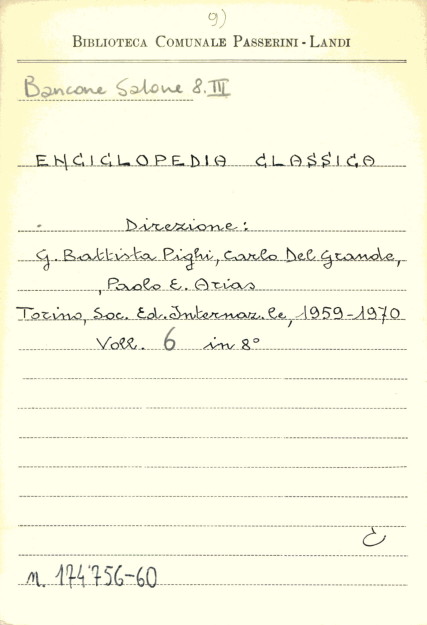 9)
BIBLIOTECA COMUNALE PASSERINI-LANDI
Bancone Salone 8.III
ENCICLOPEDIA CLASSICA
Direzione:
G. Battista Pighi, Carlo Del Grande,
, Paolo E. Arias
Torino, Soc. Ed. Internaz.le, 1959-1970
Voll. 6 in 8°
n. 174756-60